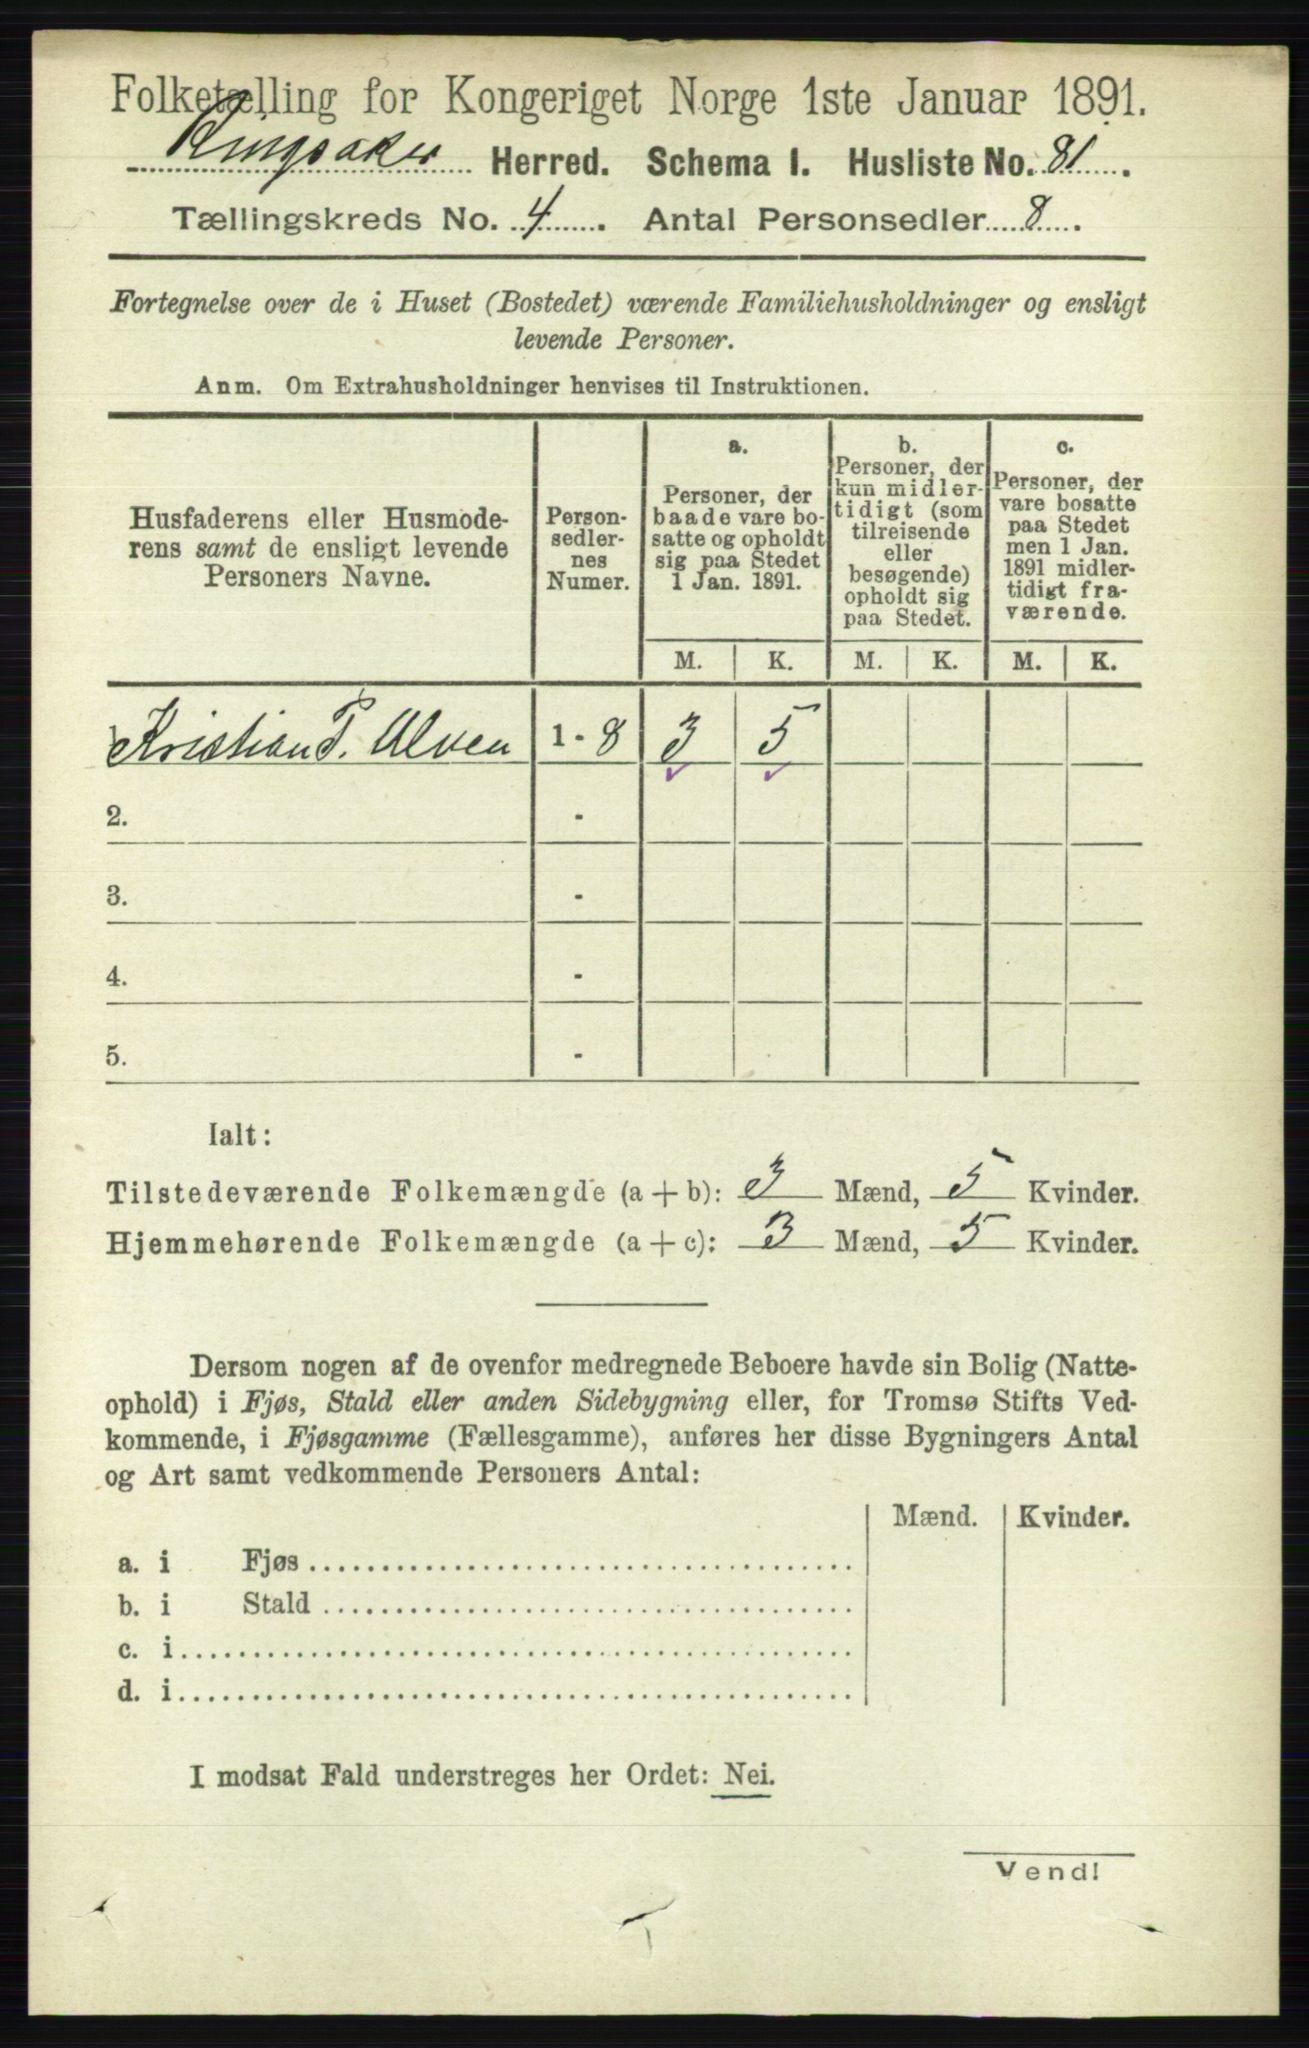 Folketælling for Kongeriget Norge 1ste Januar 1891.
Ringsaker Herred. Schema 1. Husliste No. 81.
Tællingskreds No. 4. Antal Personsedler 8.
Fortegnelse over de i Huset (Bostedet) værende Familiehusholdninger og ensligt
levende Personer.
Anm. Om Extrahusholdninger henvises til Instruktionen.
Husfaderens eller Husmode-
rens samt de ensligt levende
Personers Navne.
Person-
sedler-
nes
Numer.
a.
Personer, der
baade vare bo-
satte og opholdt
sig paa Stedet
1 Jan. 1891.
b.
Personer, der
kun midler-
tidigt (som
tilreisende
eller
besøgende)
opholdt sig
paa Stedet.
c.
Personer, der
vare bosatte
paa Stedet
men 1 Jan.
1891 midler-
tidigt fra-
værende.
M. K. M. K. M. K.
Kristian P. Alven 1 - 8 3 5
2. -
3. -
4. -
5. -
Ialt:
Tilstedeværende Folkemængde (a + b): 3 Mænd, 5 Kvinder.
Hjemmehørende Folkemængde (a + c): 3 Mænd, 5 Kvinder.
Dersom nogen af de ovenfor medregnede Beboere havde sin Bolig (Natte-
ophold) i Fjøs, Stald eller anden Sidebygning eller, for Tromsø Stifts Ved-
kommende, i Fjøsgamme (Fællesgamme), anføres her disse Bygningers Antal
og Art samt vedkommende Personers Antal:
Mænd. Kvinder.
a. i Fjøs
b. i Stald
c. i
d. i
I modsat Fald understreges her Ordet: Nei.
Vend!